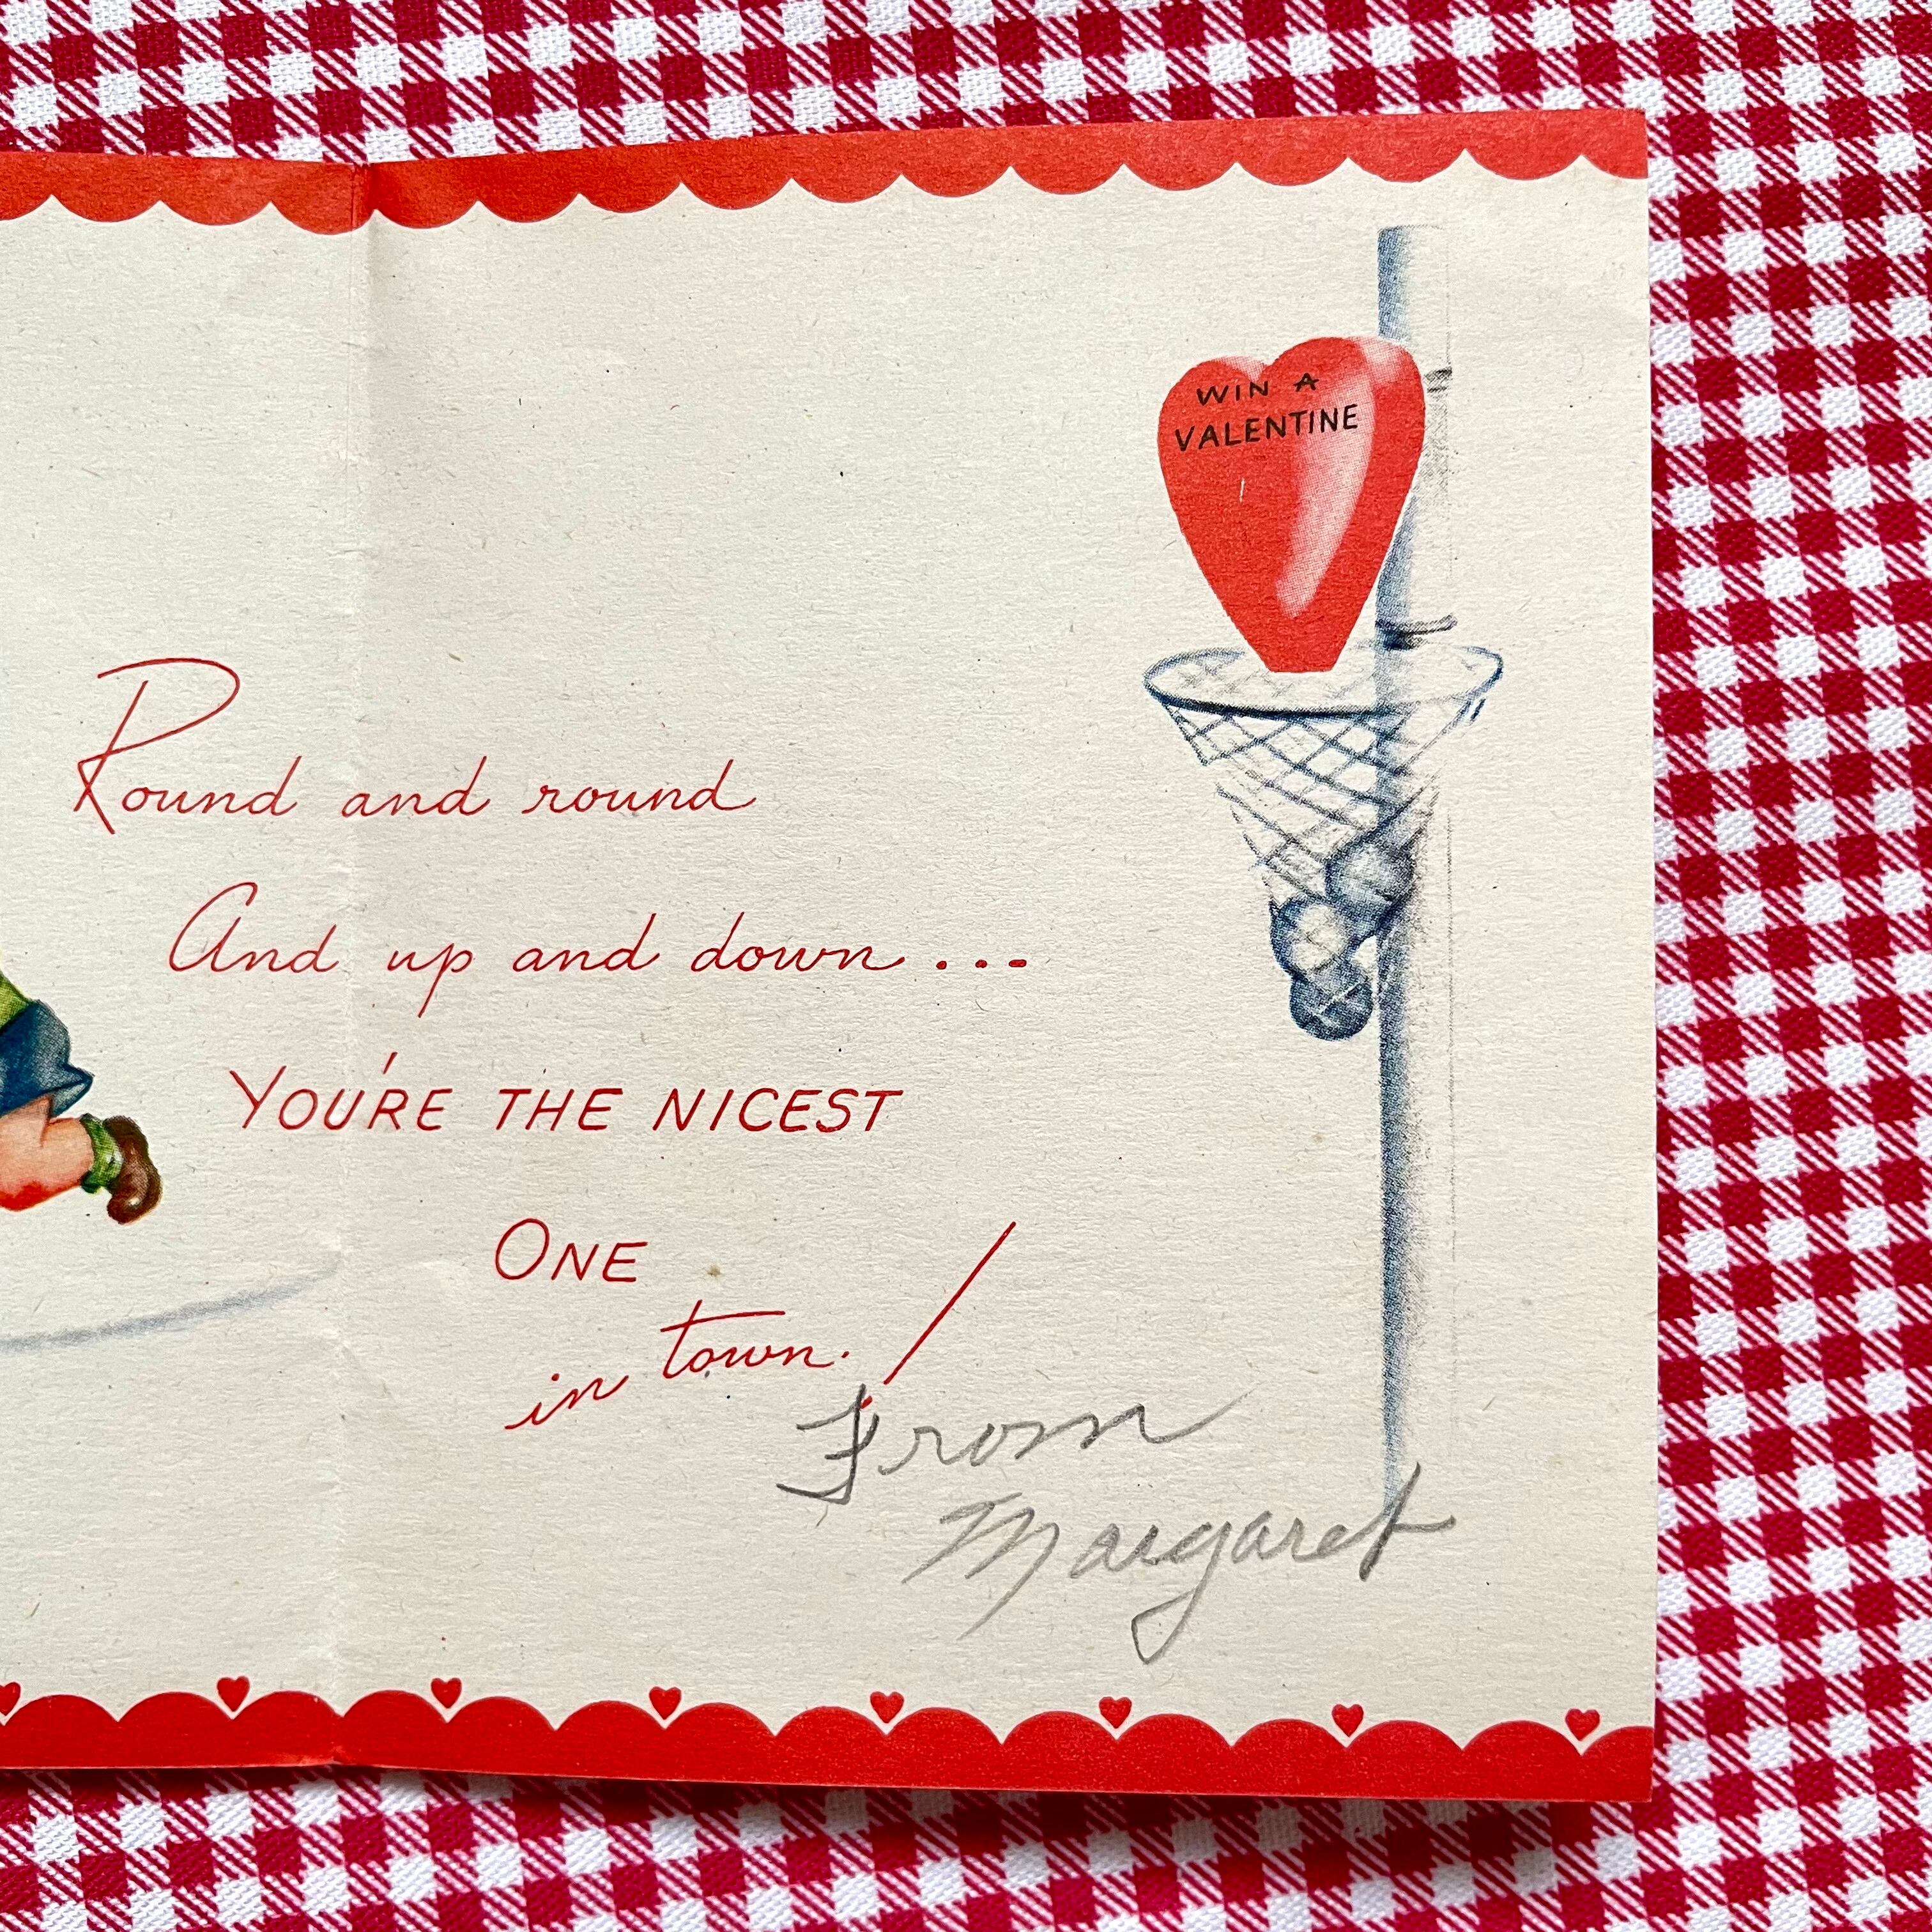 WIN A
VALENTINE
Round and round
And up and down...
YOU'RE THE NICEST
ONE
in town!
From
Margaret